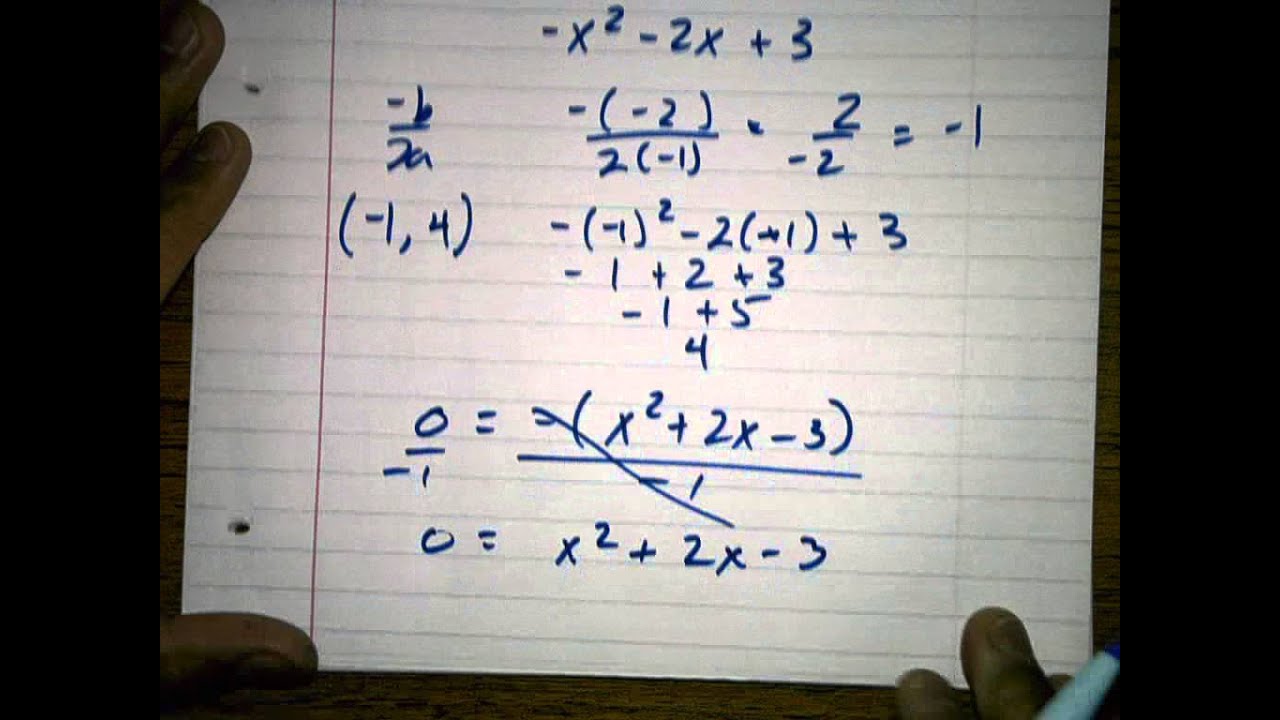 -x² - 2x + 3
-b/2a  -(-2)/2(-1) · 2/-2 = -1
(-1, 4)  -(-1)² - 2(-1) + 3
- 1 + 2 + 3
- 1 + 5
4
0/-1 = -(x² + 2x - 3)/-1
0 = x² + 2x - 3